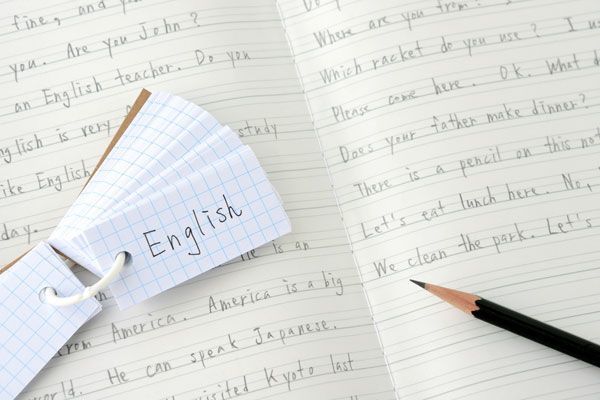 fine, and you
you. Are you John?
an English teacher. Do you
English is very study
like English
day.
is an
from America. America is a big
world. He can speak Japanese.
visited Kyoto last
English
Do
Where are you from? I
Which racket do you use? I us
Please come here. Ok. What d
Does your father make dinner?
There is a pencil on this not
Let's eat lunch here. No,
We clean the park. Let's